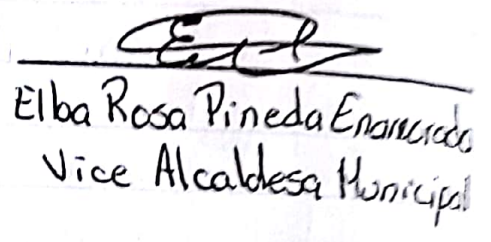 Elba Rosa Pineda Enamorado
Vice Alcaldesa Municipal